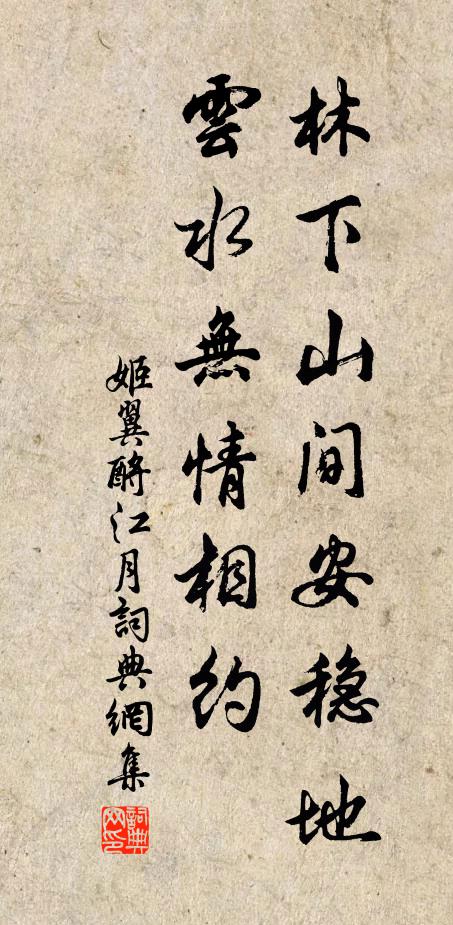 林下山间安稳地
雲水無情相约
姬翼酹江月詞典網集
詞典网印